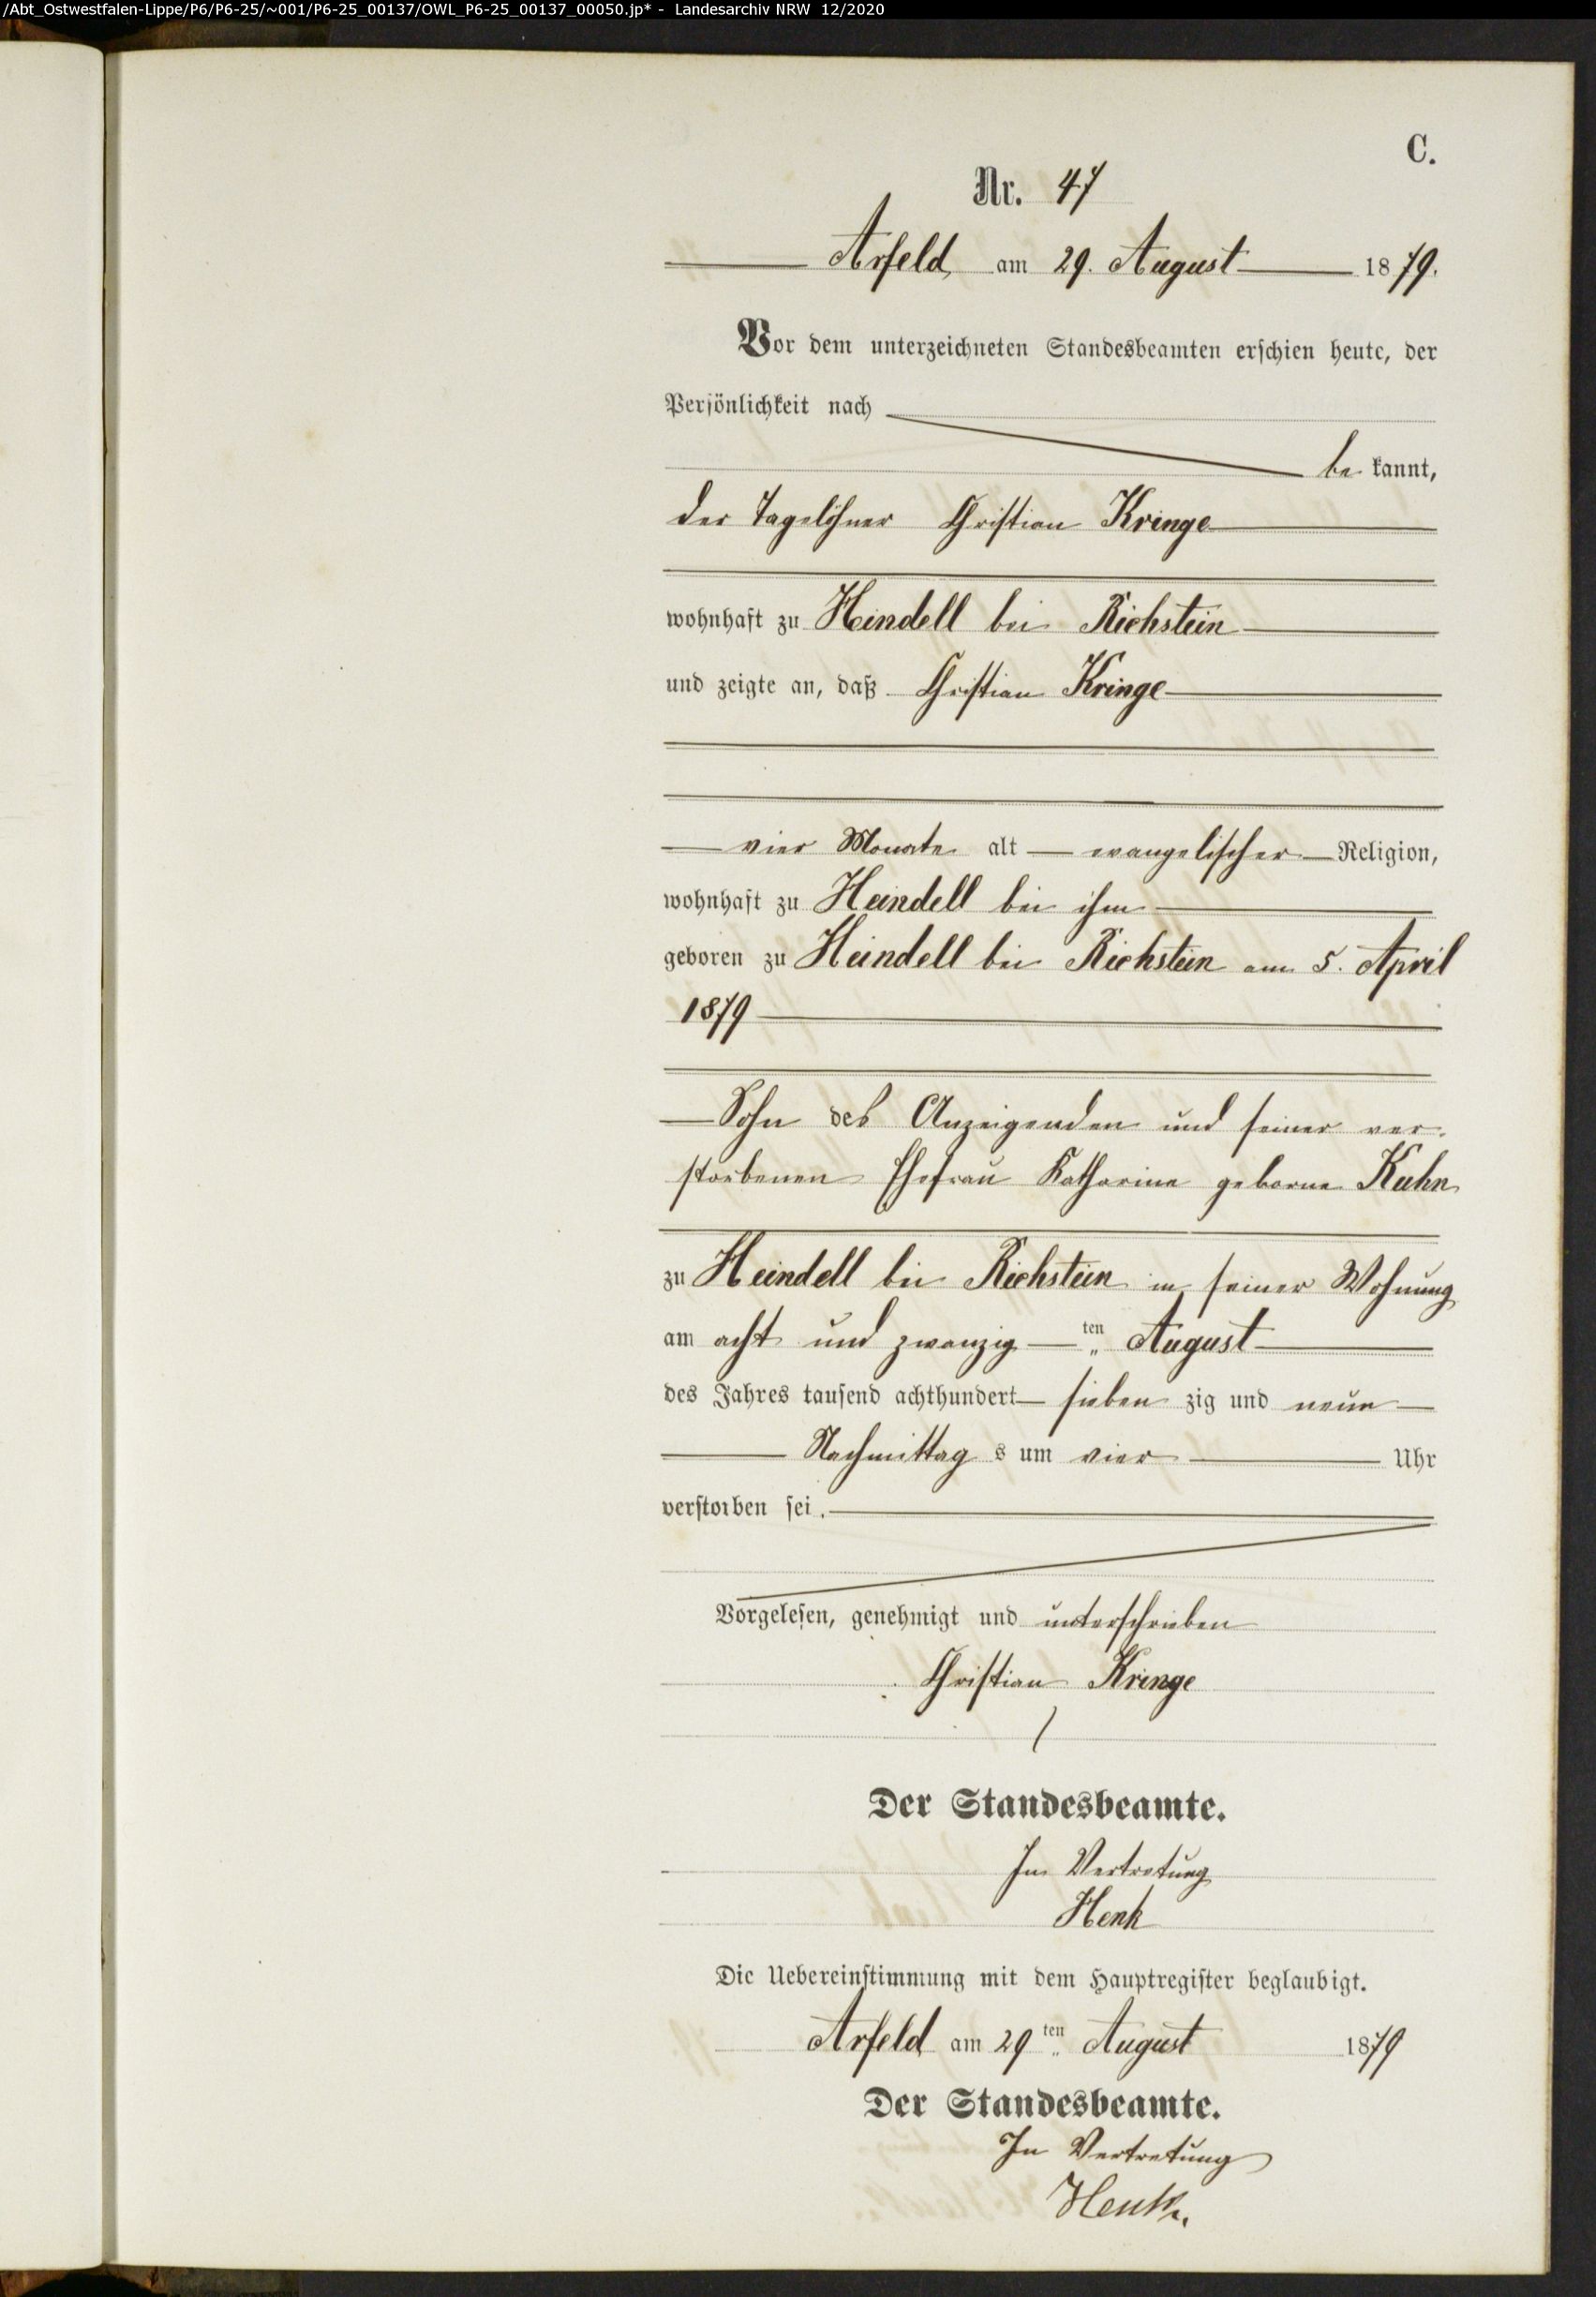 /Abt_Ostwestfalen-Lippe/P6/P6-25/~001/P6-25_00137/OWL_P6-25_00137_00050.jp* - Landesarchiv NRW 12/2020
C.
Nr. 47
Arfeld, am 29. August 1879.
Vor dem unterzeichneten Standesbeamten erschien heute, der
Persönlichkeit nach
be kannt,
der Tagelöhner Christian Kringe
wohnhaft zu Heindell bei Richstein
und zeigte an, daß Christian Kringe
vier Monate alt evangelischer Religion,
wohnhaft zu Heindell bei ihm
geboren zu Heindell bei Richstein am 5. April
1879
Sohn des Anzeigenden und seiner ver-
storbenen Ehefrau Katharina geborne Kuhn
zu Heindell bei Richstein in seiner Wohnung
am acht und zwanzig ten August
des Jahres tausend achthundert sieben zig und neun
Nachmittag s um vier Uhr
verstorben sei.
Vorgelesen, genehmigt und unterschrieben
Christian Kringe
Der Standesbeamte.
In Vertretung
Henk
Die Uebereinstimmung mit dem Hauptregister beglaubigt.
Arfeld am 29 ten August 1879
Der Standesbeamte.
In Vertretung
Henk.